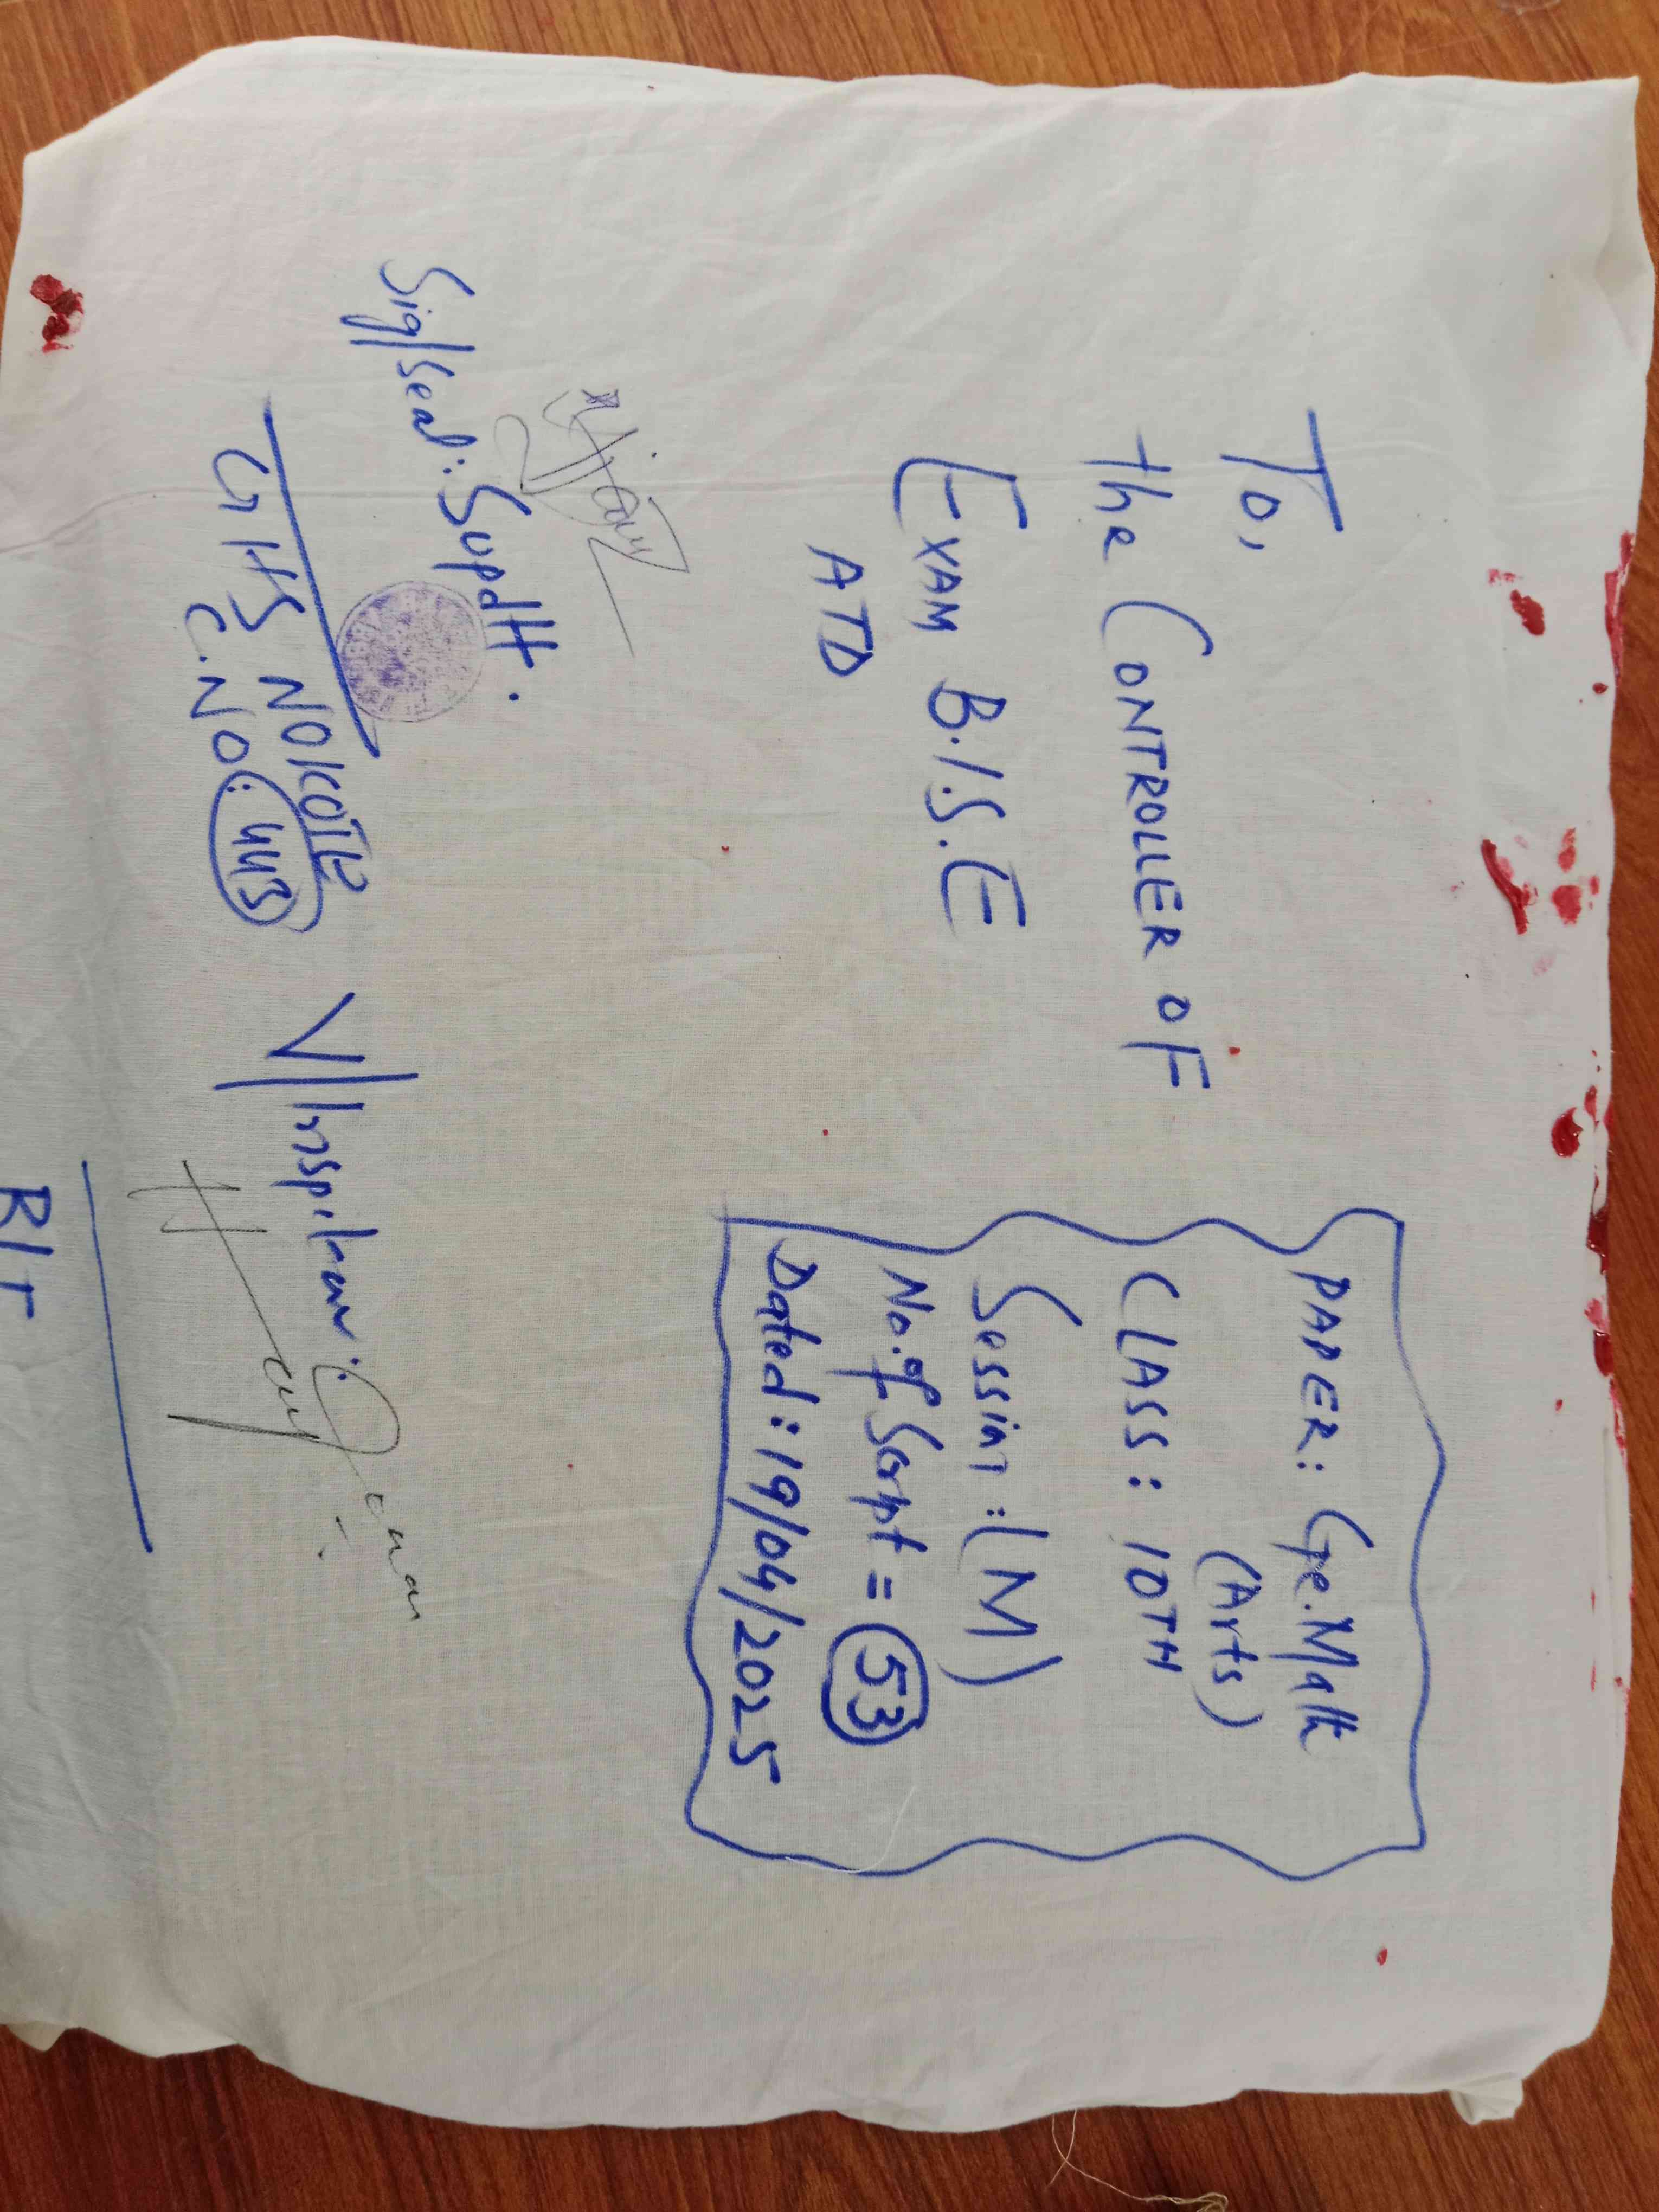 To,
the CONTROLLER OF
EXAM B.I.S.E
ATD
PAPER: Ge.Math
(Arts)
CLASS: 10TH
Session: (M)
No. of Script = 53
Dated: 19/04/2025
Sig/Seal: Supdtt.
GHS NO1KOTLE
C.NO: 443
V/Inspiter: